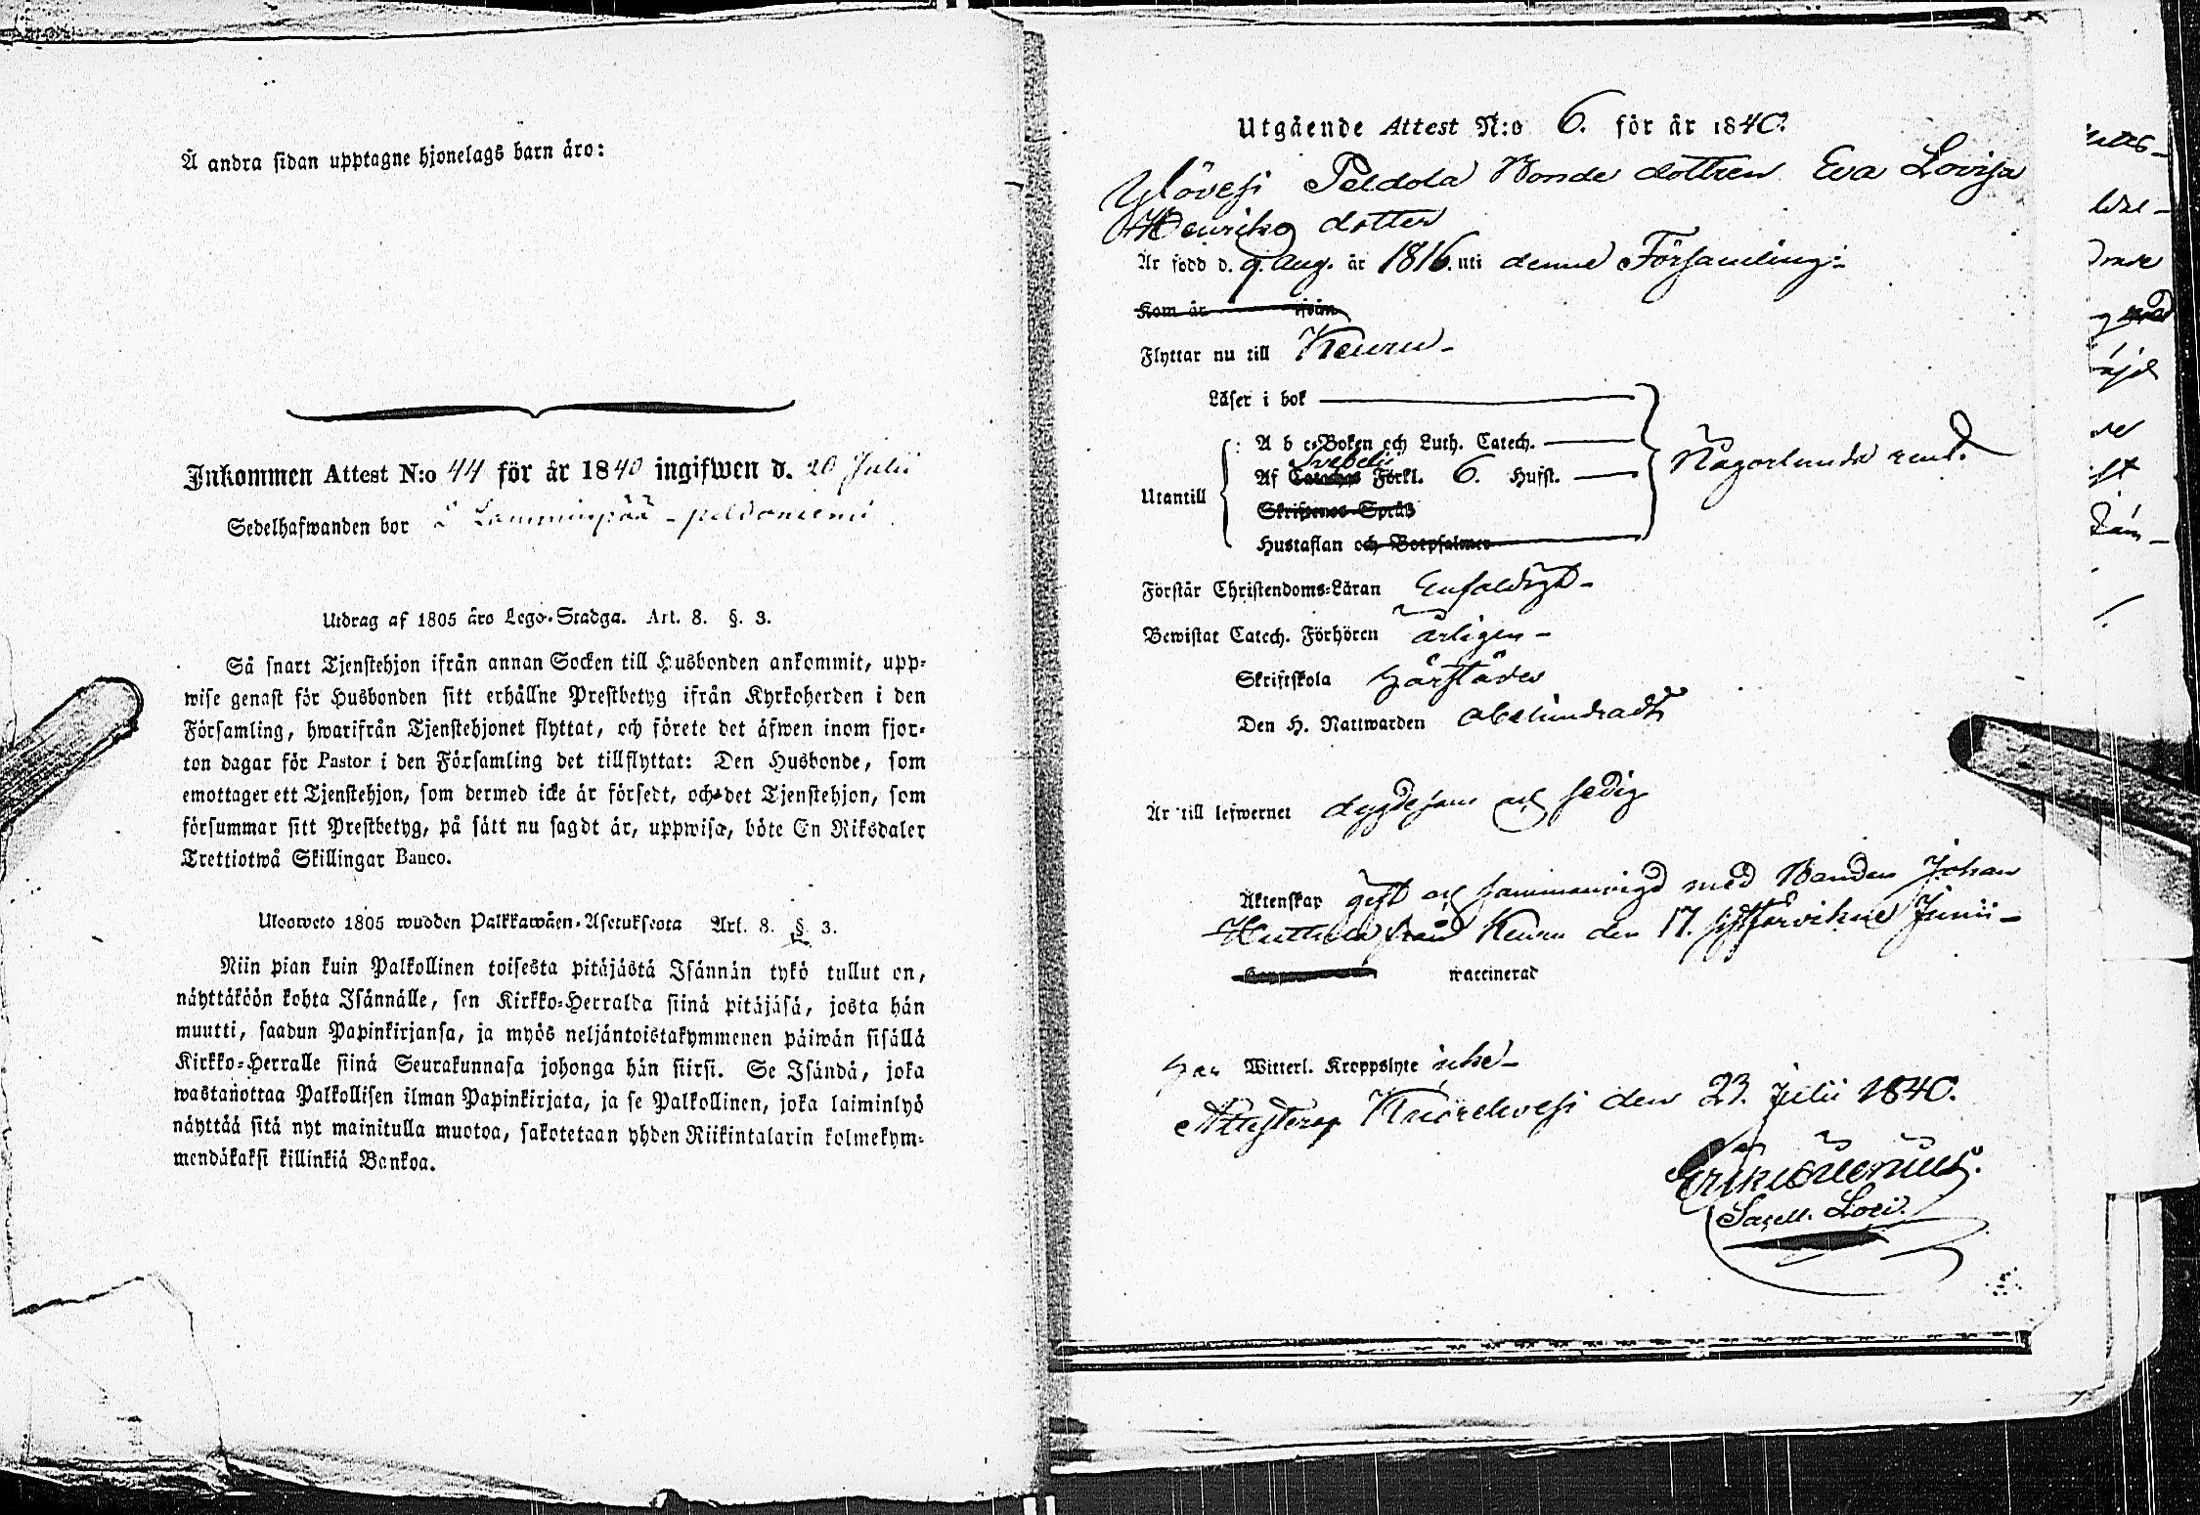 Å andra sidan upptagne hjonelags barn äro:
Inkommen Attest N:o 44 för år 1840 ingifwen d. 20 Julii
Sedelhafwanden bor
Utdrag af 1805 års Lego-Stadga. Art. 8. §. 3.
Så snart Tjenstehjon ifrån annan Socken till Husbonden ankommit, upp-
wise genast för Husbonden sitt erhållne Prestbetyg ifrån Kyrkoherden i den
Församling, hwarifrån Tjenstehjonet flyttat, och förete det äfwen inom fjor-
ton dagar för Pastor i den Församling det tillflyttat: Den Husbonde, som
emottager ett Tjenstehjon, som dermed icke är försedt, och det Tjenstehjon, som
försummar sitt Prestbetyg, på sätt nu sagdt är, uppwisa, böte En Riksdaler
Trettiotwå Skillingar Banco.
Ulosweto 1805 wuoden Palkkawäen-Asetuksesta Art. 8. §. 3.
Niin pian kuin Palkollinen toisesta pitäjästä Isännän tykö tullut on,
näyttäköön kohta Isännälle, sen Kirkko-Herralda siinä pitäjäsä, josta hän
muutti, saadun Papinkirjansa, ja myös neljäntoistakymmenen päiwän sisällä
Kirkko-Herralle siinä Seurakunnasa johonga hän siirsi. Se Isändä, joka
wastanottaa Palkollisen ilman Papinkirjata, ja se Palkollinen, joka laiminlyö
näyttää sitä nyt mainitulla muotoa, sakotetaan yhden Riikintalarin kolmekym-
mendäkaksi killinkiä Bankoa.
Utgående Attest N:o 6. för år 1840.
Peldola Bonde dottren Eva Lovisa
Henriks dotter
Är född d. 9. Aug. år 1816. uti denne Församling:
Kom år ifrån
Flyttar nu till Keuru
Läser i bok
A b c-Boken och Luth. Catech.
Svebelii
Utantill
Af Förkl. 6. Hufst.
Någorlunda rent.
Skriftenes Språk
Hustaflan och Botpsalmer
Förstår Christendoms-Läran Enfaldigt
Bewistat Catech. Förhören årligen
Skriftskola härstädes
Den H. Nattwarden
Är till lefwernet dygdesam och sedig
Äktenskap gift och sammanvigd med Bonden Johan
från Keuru den 17. sistförvikne Junii
vaccinerad
Har Witterl. Kroppslyte icke
Attesterar Kuorehvesi den 23. Julii 1840.